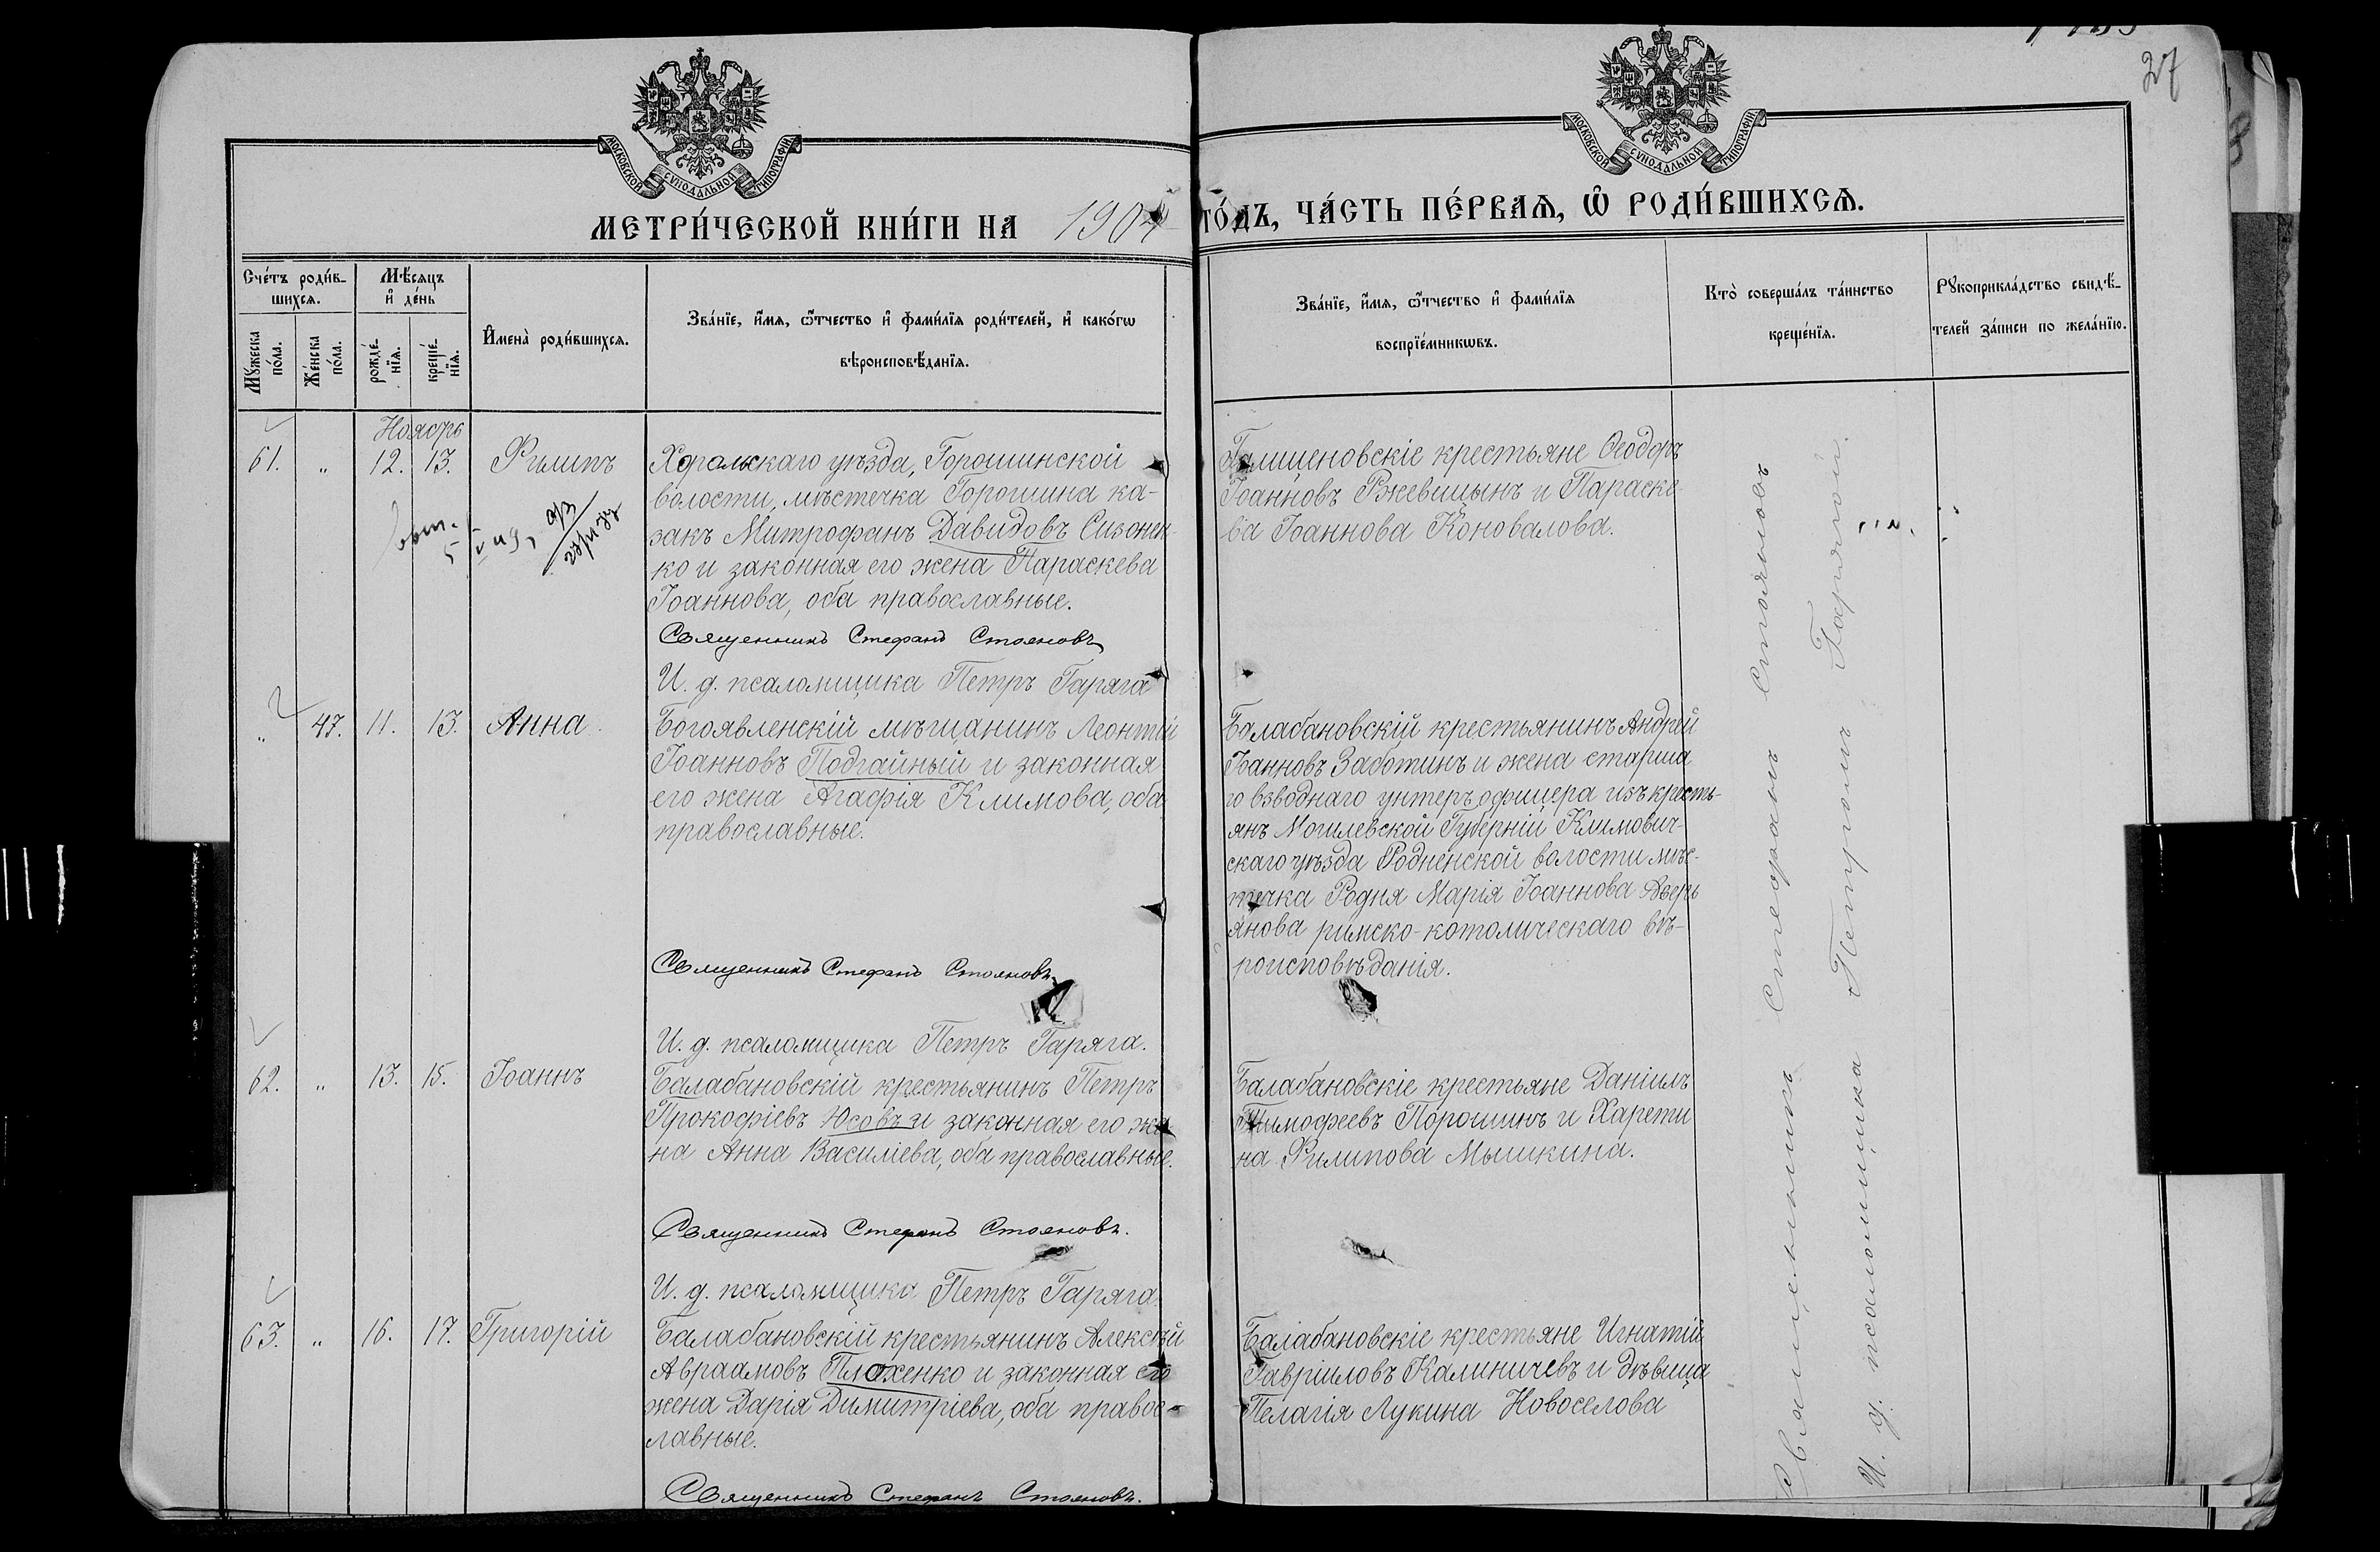 27
МОСКОВСКОЙ СУНОДАЛЬНОЙ ТИПОГРАФІИ
МОСКОВСКОЙ СУНОДАЛЬНОЙ ТИПОГРАФІИ
МЕТРИ́ЧЕСКОЙ КНИ́ГИ НА 1904 ГО́ДЪ, ЧА́СТЬ ПЕ́РВАѦ, Ѡ РОДИ́ВШИХСѦ.
Сче́тъ роди́в-
шихся.
Мѣ́сяцъ
и҆ де́нь
Мꙋ́жеска
по́ла.
Же́нска
по́ла.
рожде́-
нїя.
креще́-
нїя.
И҆мена̀ роди́вшихся.
Зва́нїе, и҆́мя, ѻ҆́тчество и҆ фами́лїя роди́телей, и҆ како́гѡ
вѣроисповѣ́данїя.
Зва́нїе, и҆́мя, ѻ҆́тчество и҆ фами́лїя
воспрїе́мникѡвъ.
Кто̀ соверша́лъ та́инство
креще́нїя.
Рꙋкоприкла́дство свидѣ́-
телей за́писи по жела́нїю.
Ноябрь
61. „ 12. 13. Филипъ
Хорольскаго уѣзда, Горошинской
волости, мѣстечка Горошина ка-
закъ Митрофанъ Давидовъ Сизонен-
ко и законная его жена Параскева
Іоаннова, оба православные.
Священникъ Стефанъ Стояновъ
И. д. псаломщика Петръ Гаряга
крестьяне Ѳеодоръ
Іоанновъ Ржевецынъ и Параске-
ва Іоаннова Коновалова.
„ 47. 11. 13. Анна
Богоявленскій мѣщанинъ Леонтій
Іоанновъ Подгайный и законная
его жена Агафія Климова, оба
православные.
Священникъ Стефанъ Стояновъ
И. д. псаломщика Петръ Гаряга.
Балабановскій крестьянинъ Андрей
Іоанновъ Заботинъ и жена старша
го взводнаго унтеръ офицера изъ кресть-
янъ Могилевской Губерніи Климович-
скаго уѣзда Родненской волости мѣс-
течка Родня Марія Іоаннова Аверь
янова римско-котолическаго вѣ-
роисповѣданія.
62. „ 13. 15. Іоаннъ
Балабановскій крестьянинъ Петръ
Прокофіевъ Юсовъ и законная его же
на Анна Василіева, оба православные.
Священникъ Стефанъ Стояновъ.
И. д. псаломщика Петръ Гаряга.
Балабановскіе крестьяне Даніилъ
Тимофеевъ Порошинъ и Харети
на Филипова Мышкина.
63. „ 16. 17. Григорій
Балабановскій крестьянинъ Алексѣй
Авраамовъ Плохенко и законная его
жена Дарія Димитріева, оба правос-
лавные.
Священникъ Стефанъ Стояновъ.
Балабановскіе крестьяне Игнатій
Гавріиловъ Калиничевъ и дѣвица
Пелагія Лукина Новоселова
Священникъ Стефанъ Стояновъ
И. д. псаломщика Петромъ Гарягой.